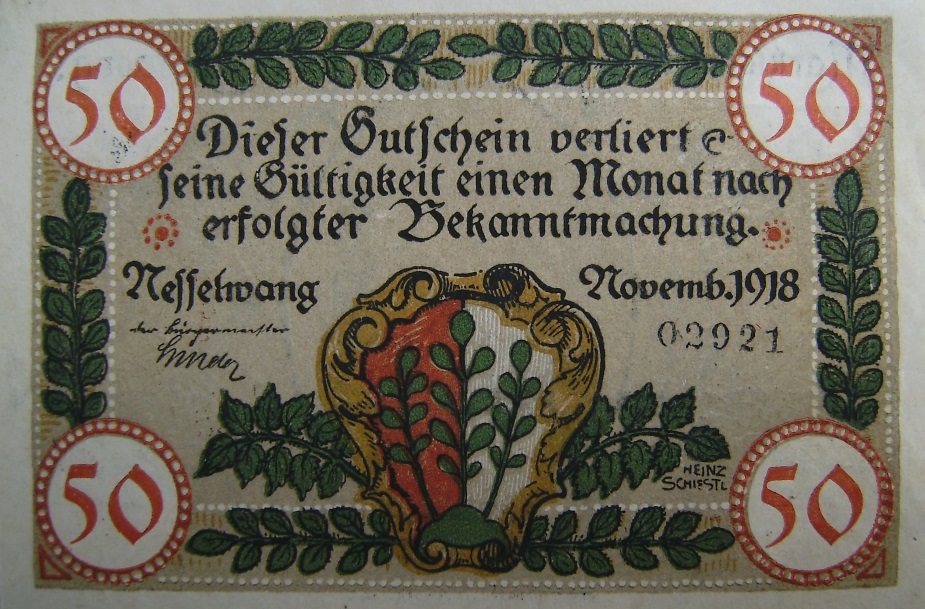 50 50
Dieser Gutschein verliert
seine Gültigkeit einen Monat nach
erfolgter Bekanntmachung.
Nesselwang Novemb. 1918
der bürgermeister
02921
HEINZ
SCHIESTL
50 50